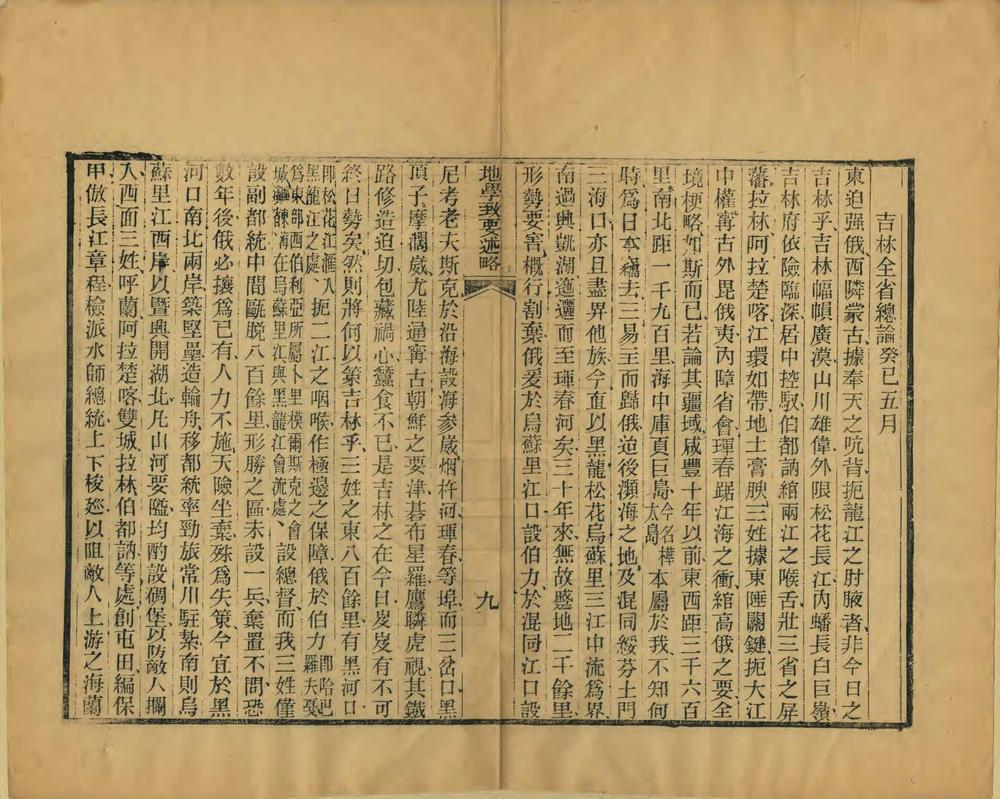 吉林全省總論癸巳五月
東迫强俄西隣蒙古據奉天之吭背扼龍江之肘腋者非今日之
吉林乎吉林幅幀廣漠山川雄偉外限松花長江內蟠長白巨嶺
吉林府依險臨深居中控馭伯都訥綰兩江之喉舌壯三省之屏
藩拉林阿拉楚喀江環如帶地土膏腴三姓據東陲關鍵扼大江
中權寗古外毘俄夷內障省會琿春踞江海之衝綰高俄之要全
境梗略如斯而已若論其疆域咸豐十年以前東西距三千六百
里南北距一千九百里海中庫頁巨島今名樺太島本屬於我不知何
時爲日本竊去三易主而歸俄迫後瀕海之地及混同綏芬土門
三海口亦且盡畀他族今直以黑龍松花烏蘇里三江中流爲界
南過興凱湖迤邐而至琿春河矣三十年來無故蹙地二千餘里
形勢要害概行割棄俄爰於烏蘇里江口設伯力於混同江口設
地學致要述略
九
尼考老夫斯克於沿海設海參崴烟杵河琿春等埠而三岔口黑
頂子摩濶崴尤陸通寗古朝鮮之要津碁布星羅鷹瞵虎視其鐵
路修造迫切包藏禍心蠶食不已是吉林之在今日岌岌有不可
終日勢矣然則將何以策吉林乎三姓之東八百餘里有黑河口
即松花江滙入黑龍江之處扼二江之咽喉作極邊之保障俄於伯力即哈巴羅夫憂
爲東部西伯利亞所屬卜里模爾斯克之會城瀕海在烏蘇里江與黑龍江會流處設總督而我三姓僅
設副都統中間甌脫八百餘里形勝之區未設一兵棄置不問恐
數年後俄必攘爲已有人力不施天險坐棄殊爲失策今宜於黑
河口南北兩岸築堅壘造輪舟移都統率勁旅常川駐紮南則烏
蘇里江西岸以暨興開湖北凡山河要隘均酌設碉堡以防敵人攔
入西面三姓呼蘭阿拉楚喀雙城拉林伯都訥等處創屯田編保
甲倣長江章程檢派水師總統上下梭廵以咀敵人上游之海蘭